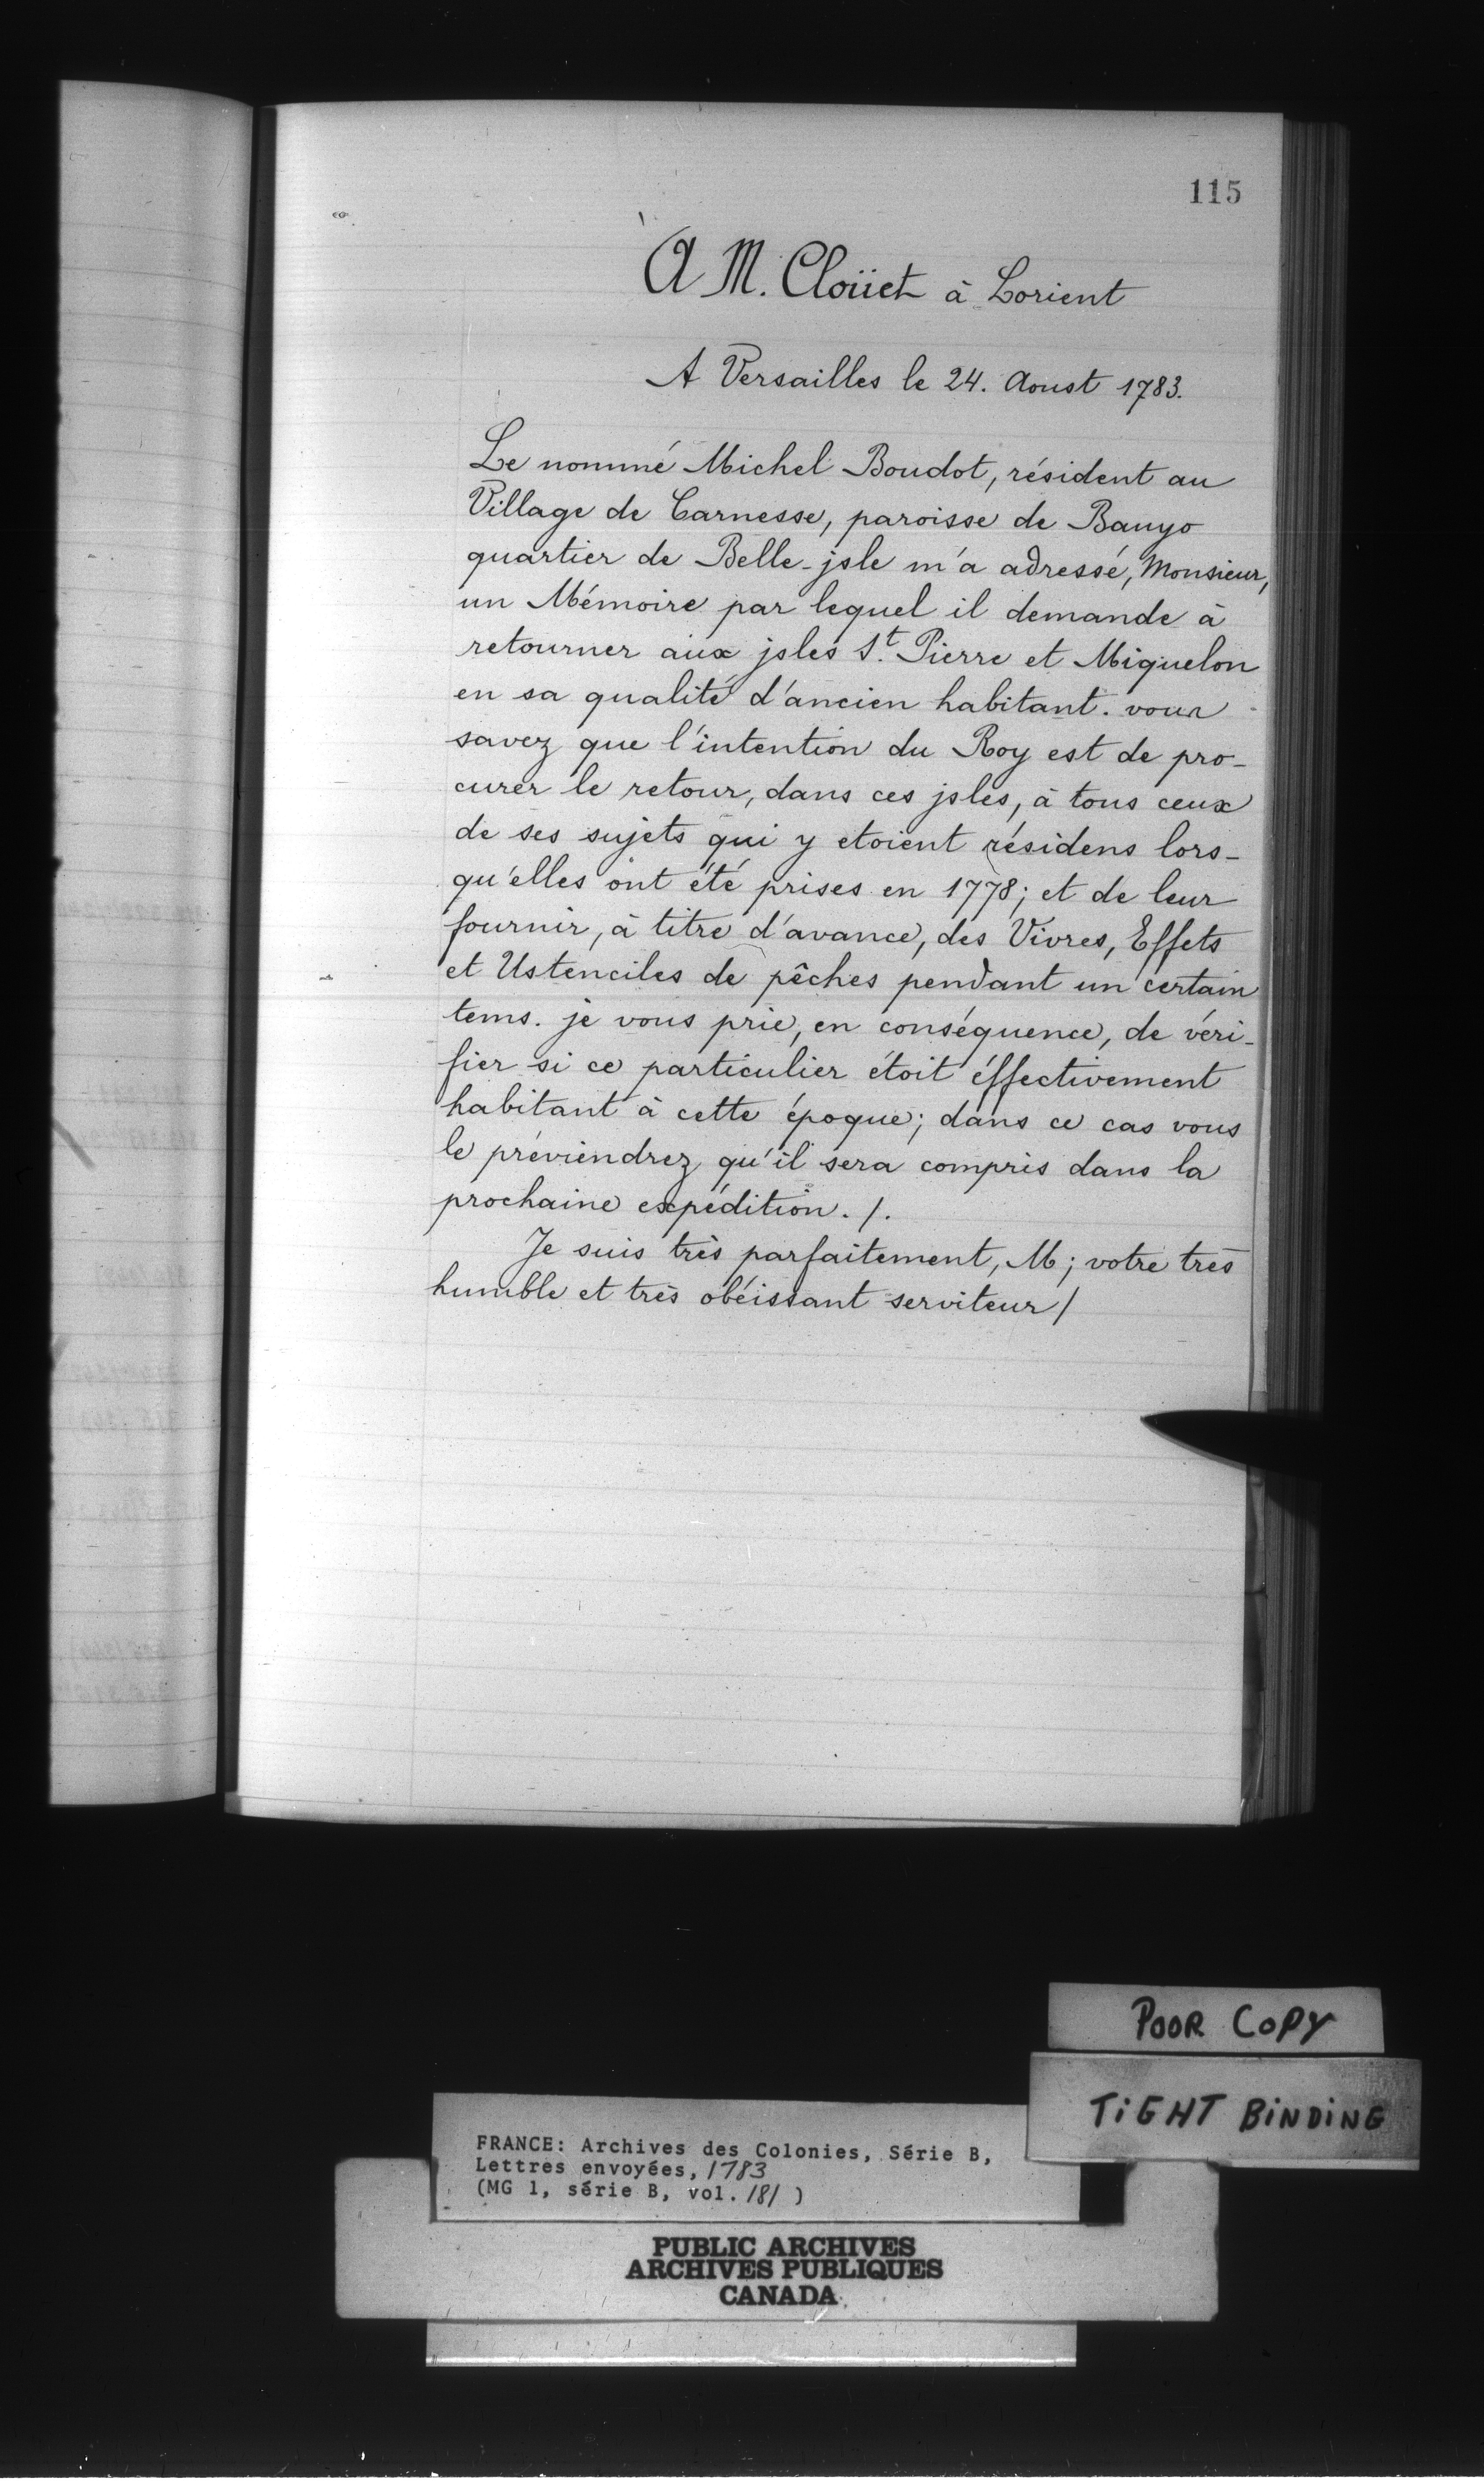 115
A M. Cloüet à Lorient
A Versailles le 24. Aoust 1783.
Le nommé Michel Boudot, résident au
Village de Carnesse, paroisse de Banyo
quartier de Belle-jsle m'a adressé, Monsieur,
un Mémoire par lequel il demande à
retourner aux jsles St. Pierre et Miquelon
en sa qualité d'ancien habitant. vous
savez que l'intention du Roy est de pro-
curer le retour, dans ces jsles, à tous ceux
de ses sujets qui y etoient résidens lors-
qu'elles ont été prises en 1778; et de leur
fournir, à titre d'avance, des Vivres, Effets
et Ustenciles de pêches pendant un certain
tems. je vous prie, en conséquence, de véri-
fier si ce particulier étoit éffectivement
habitant à cette époque; dans ce cas vous
le préviendrez qu'il sera compris dans la
prochaine expédition. /.
Je suis très parfaitement, M; votre très
humble et très obéissant serviteur /
POOR COPY
TIGHT BINDING
FRANCE: Archives des Colonies, Série B,
Lettres envoyées, 1783
(MG 1, série B, vol. 181 )
PUBLIC ARCHIVES
ARCHIVES PUBLIQUES
CANADA